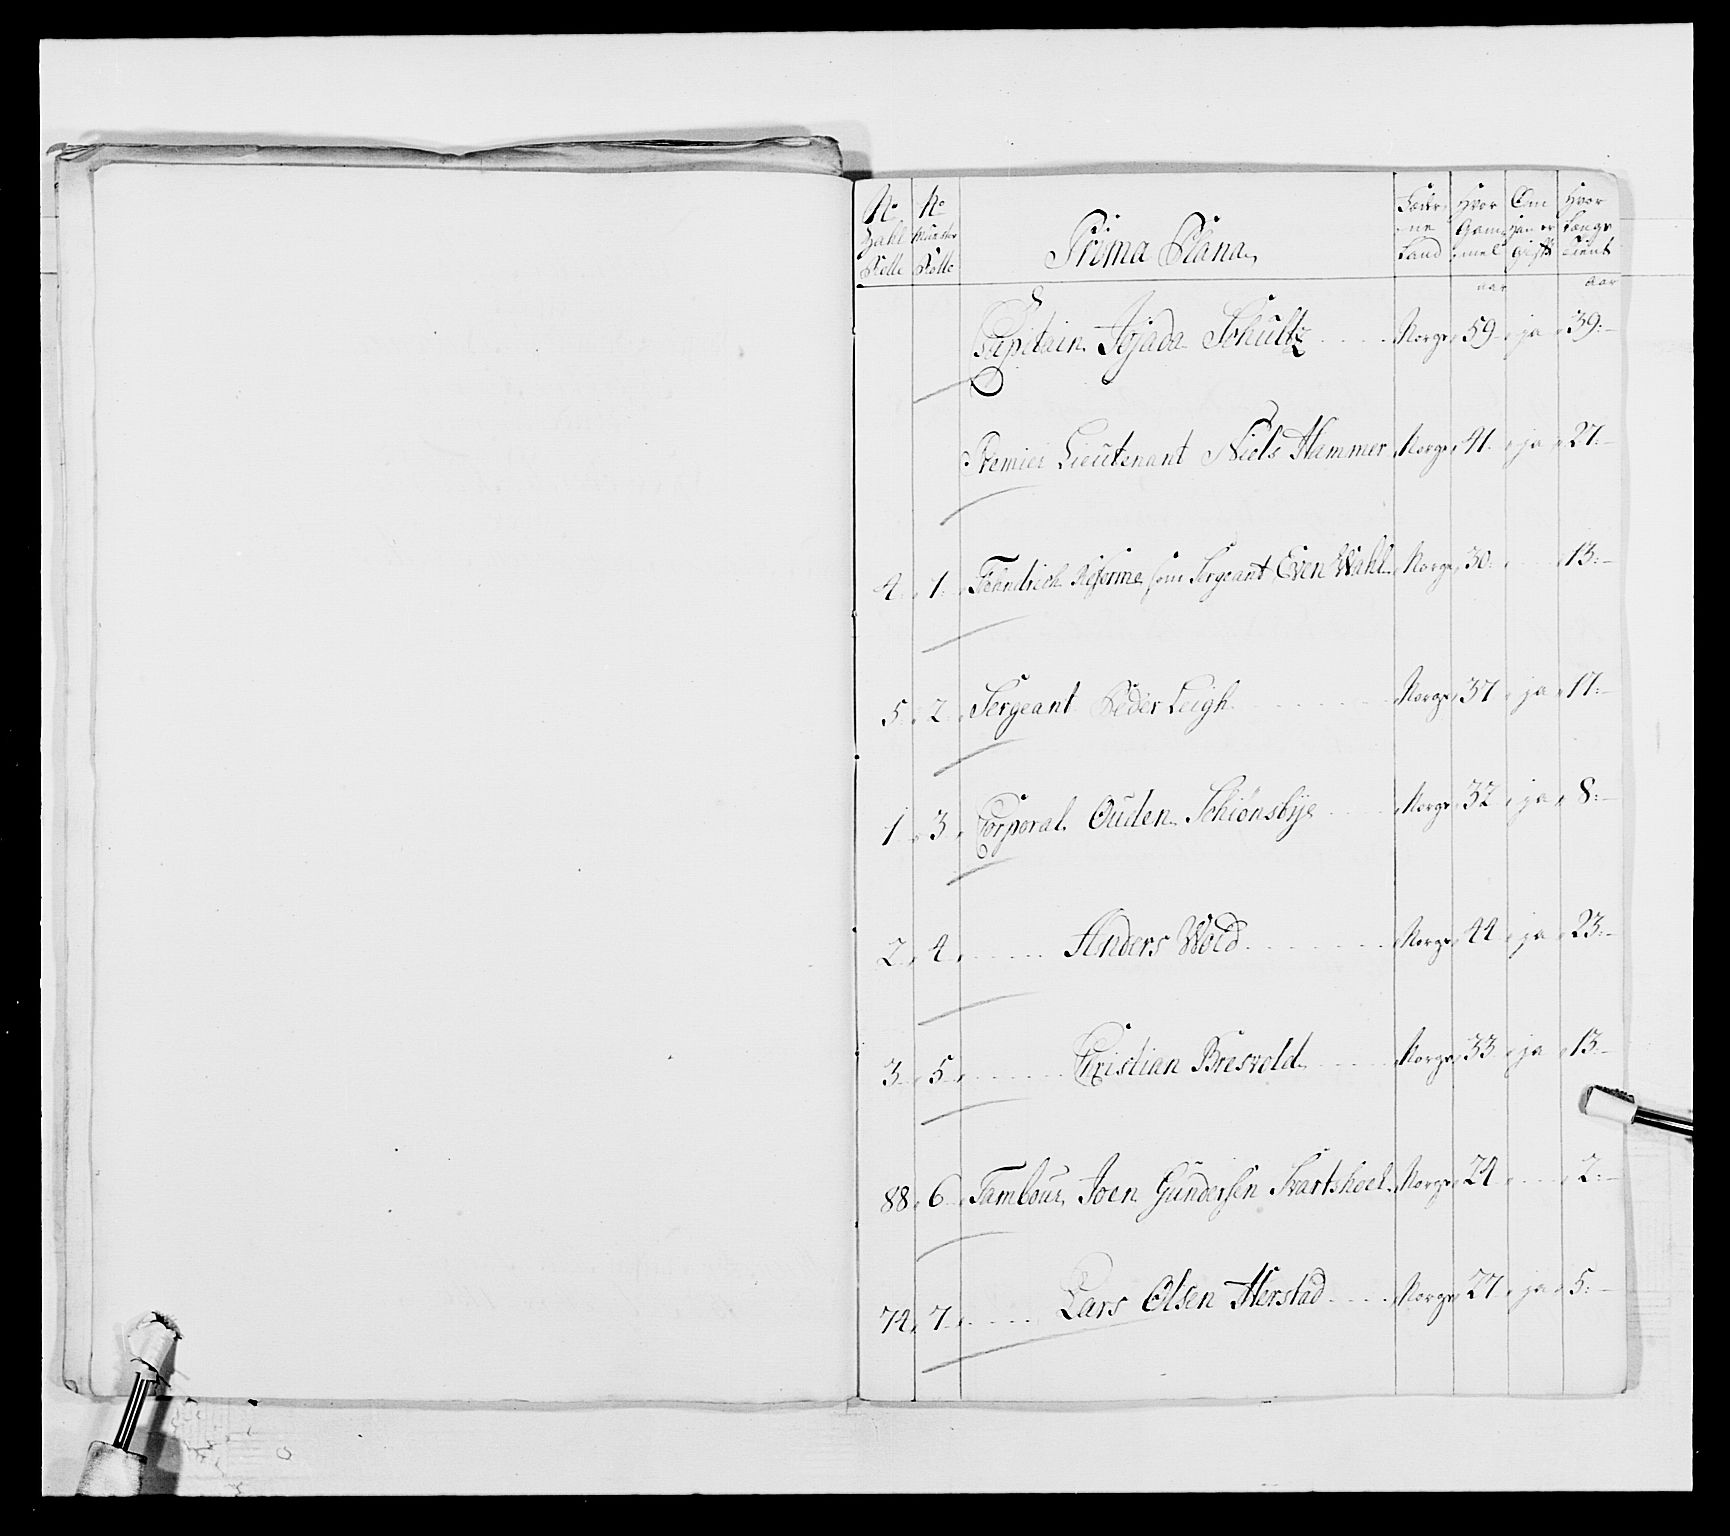 No No Prima Plana, Fæde- Hvor Om Hvor
Zahl Mùnster -ne Gam- han er længe
Rolle Rolle Land -mel gift tient
aar aar
Capitain Jojada Schùltz Norge 59 ja 39:
Premier Lieùtenant Niels Hammer Norge 41 ja 27:
4 1 Fændrich Reforme som Sergeant Even Wahl Norge 30 13:
5 2 Sergeant Peder Leigh Norge 37 ja 17:
1 3 Corporal Oùden Schiönsbye Norge 32 ja 8:
2 4 Anders Wold Norge 44 ja 23:
3 5 Christian Bresvold Norge 33 ja 13
88 6 Tamboùr Joen Gùndersen Svartshoel Norge 24 2:
74 7 Lars Olsen Herstad Norge 27 ja 5: